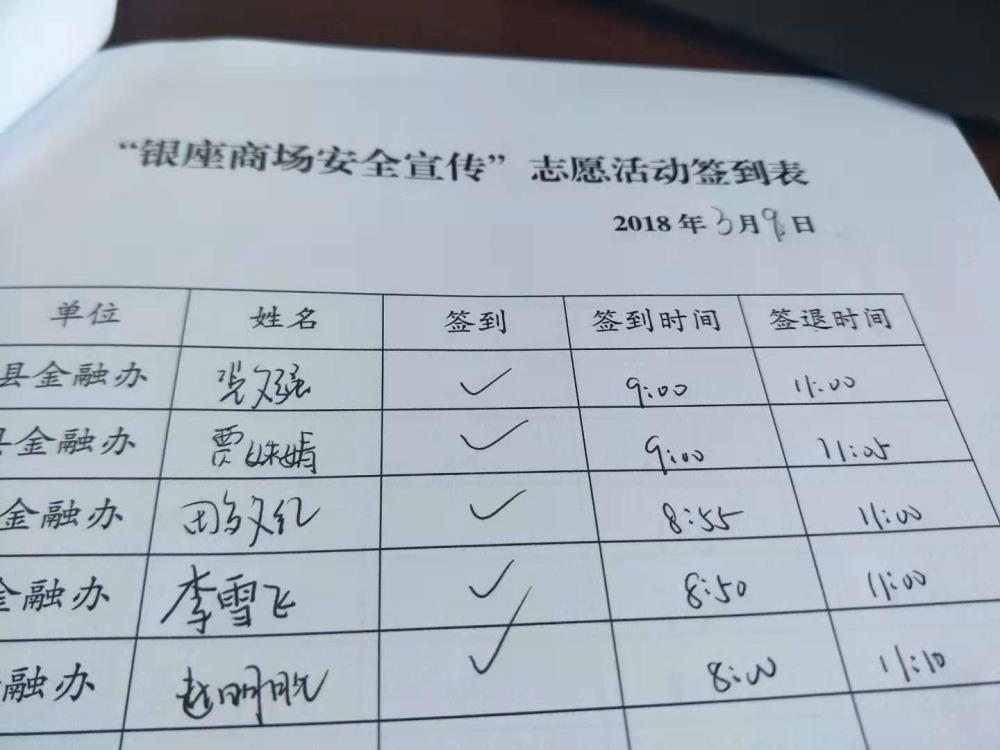 “银座商场安全宣传”志愿活动签到表
2018年3月9日
单位 姓名 签到 签到时间 签退时间
县金融办 文强 ✓ 9:00 11:00
金融办 贾姝娟 ✓ 9:00 11:05
金融办 ✓ 8:55 11:00
金融办 李雪飞 ✓ 8:50 11:00
融办 赵明 ✓ 8:00 11:10